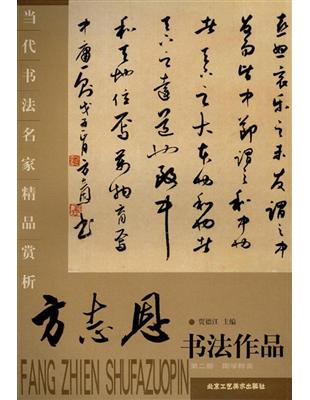 当代书法名家精品赏析
喜怒哀樂之未发謂之中
发而皆中節謂之和中也
者天下之大本也和也者
天下之達道也致中
和天地位焉萬物育焉
中庸一则戊子
方志恩
FANG ZHIEN SHUFAZUOPIN
贾德江 主编
书法作品
第二册
北京工艺美术出版社